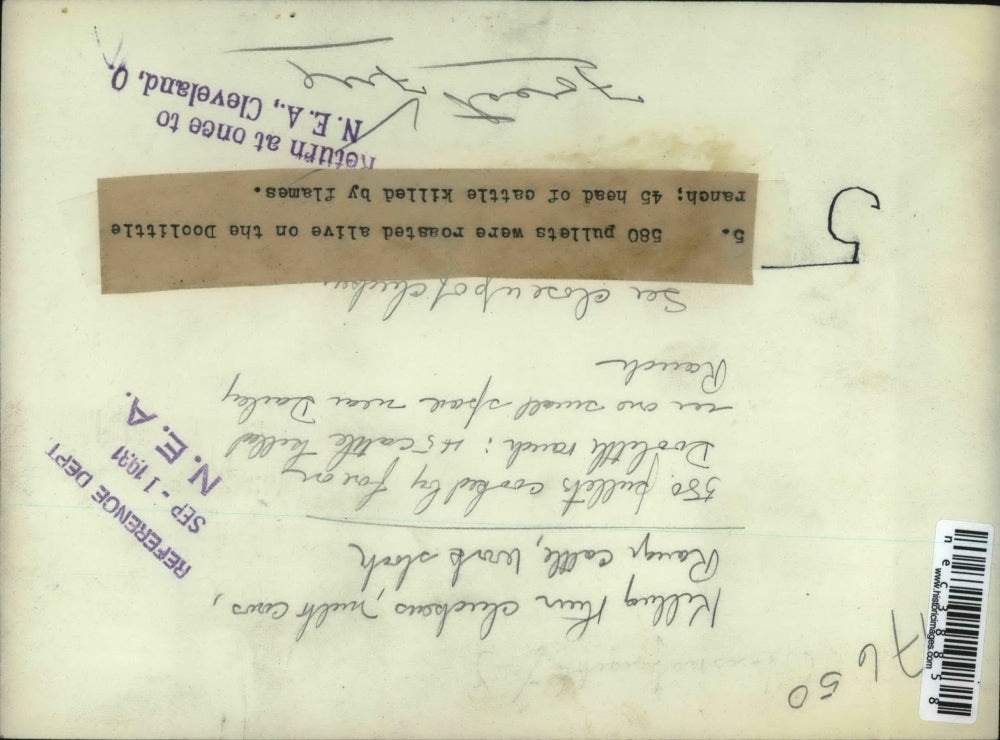 Killing their chickens, milk cows,
Range cattle, work stock
580 pullets cooked by fire on
Doolittle ranch; 45 cattle killed
in one small space near Danley
Ranch
See close up of chicken
5. 580 pullets were roasted alive on the Doolittle
ranch; 45 head of cattle killed by flames.
5
Return at once to
N. E. A., Cleveland, O.
Forest Fire
REFERENCE DEPT.
SEP - 1 1931
N. E. A.
7650
www.historicimages.com
nec38858